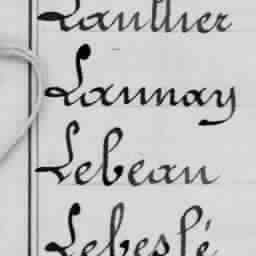 Laulhier
Launay
Lebeau
Lebeslé